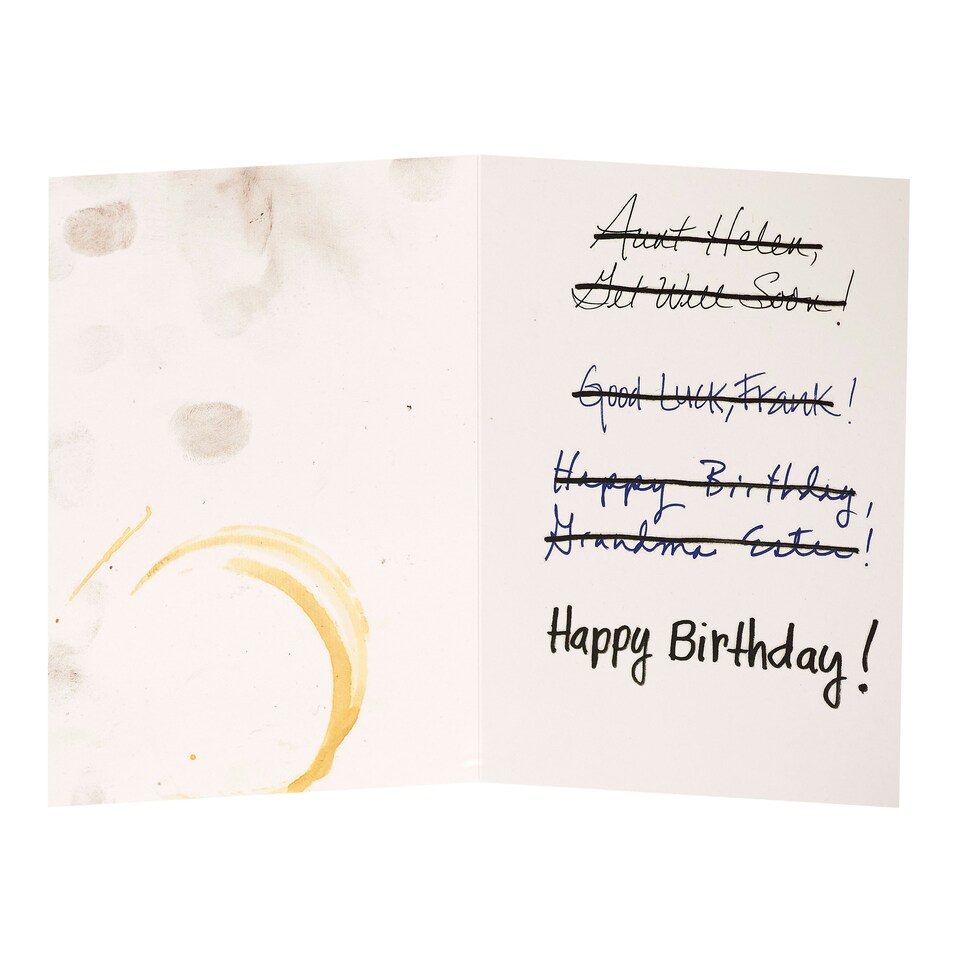 Aunt Helen,
Get Well Soon!
Good Luck, Frank!
Happy Birthday,
Grandma Ester!
Happy Birthday!